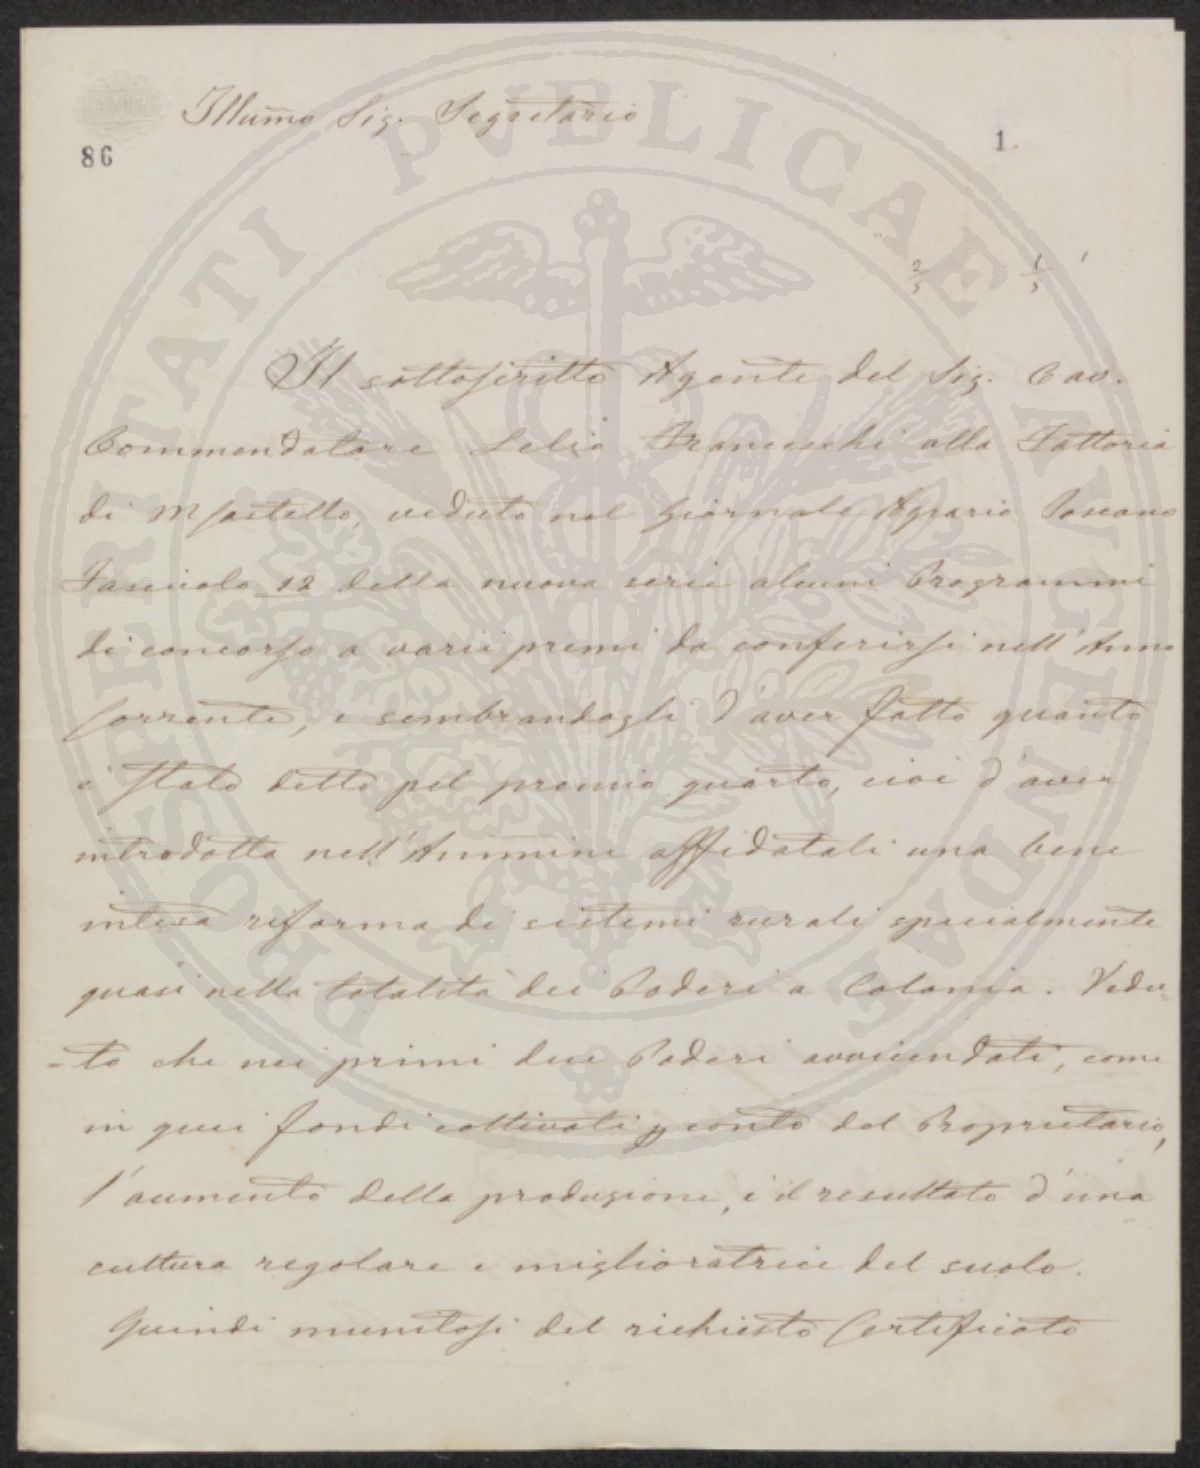 Illumo Sig. Segretario
86
1.
2/5 1/5
Il sottoscritto Agente del Sig. Cav.
Commendatore Lelio Franceschi alla Fattoria
di veduto nel Giornale Agrario Toscano
Fascicolo 12 della nuova serie alcuni Programmi
di concorso a varii premi da conferirsi nell'Anno
Corrente, e sembrandogli d'aver fatto quanto
è stato detto pel premio quarto, cioè d'aver
introdotta nell'Ammine affidatali una bene
intesa reforma di sistemi rurali specialmente
quasi nella totalità dei Poderi a Colonia. Vedu-
-to che nei primi due Poderi avvicendati, come
in quei fondi coltivati p conto del Proprietario,
l'aumento della produzione, è il resultato d'una
cultura regolare e miglioratrice del suolo.
Quindi munitosi del richiesto Certificato
PROSPERITATI PVBLICAE AVGENDAE